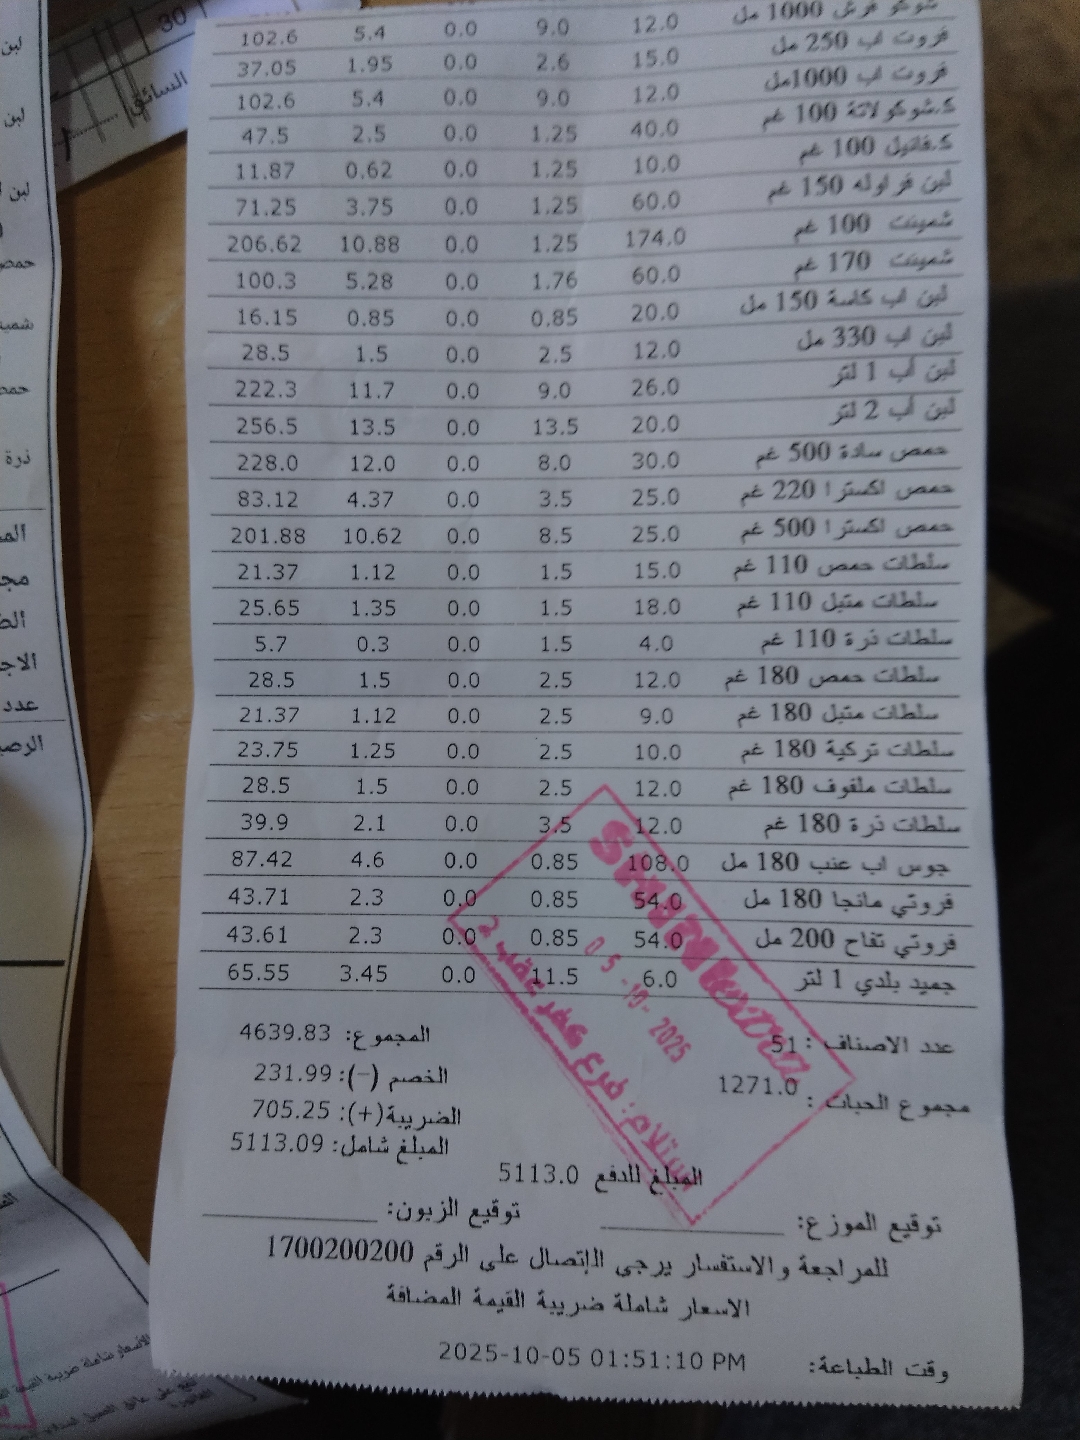 شوكو فرش 1000 مل 12.0 9.0 0.0 5.4 102.6
فروت اب 250 مل 15.0 2.6 0.0 1.95 37.05
فروت اب 1000مل 12.0 9.0 0.0 5.4 102.6
ك.شوكولاتة 100 غم 40.0 1.25 0.0 2.5 47.5
ك.فانيل 100 غم 10.0 1.25 0.0 0.62 11.87
لبن فراوله 150 غم 60.0 1.25 0.0 3.75 71.25
شمينت 100 غم 174.0 1.25 0.0 10.88 206.62
شمينت 170 غم 60.0 1.76 0.0 5.28 100.3
لبن اب كاسة 150 مل 20.0 0.85 0.0 0.85 16.15
لبن اب 330 مل 12.0 2.5 0.0 1.5 28.5
لبن أب 1 لتر 26.0 9.0 0.0 11.7 222.3
لبن أب 2 لتر 20.0 13.5 0.0 13.5 256.5
حمص سادة 500 غم 30.0 8.0 0.0 12.0 228.0
حمص اكسترا 220 غم 25.0 3.5 0.0 4.37 83.12
حمص اكسترا 500 غم 25.0 8.5 0.0 10.62 201.88
سلطات حمص 110 غم 15.0 1.5 0.0 1.12 21.37
سلطات متبل 110 غم 18.0 1.5 0.0 1.35 25.65
سلطات ذرة 110 غم 4.0 1.5 0.0 0.3 5.7
سلطات حمص 180 غم 12.0 2.5 0.0 1.5 28.5
سلطات متبل 180 غم 9.0 2.5 0.0 1.12 21.37
سلطات تركية 180 غم 10.0 2.5 0.0 1.25 23.75
سلطات ملفوف 180 غم 12.0 2.5 0.0 1.5 28.5
سلطات ذرة 180 غم 12.0 3.5 0.0 2.1 39.9
جوس اب عنب 180 مل 108.0 0.85 0.0 4.6 87.42
فروتي مانجا 180 مل 54.0 0.85 0.0 2.3 43.71
فروتي تفاح 200 مل 54.0 0.85 0.0 2.3 43.61
جميد بلدي 1 لتر 6.0 11.5 0.0 3.45 65.55
عدد الاصناف : 51 المجموع: 4639.83
مجموع الحبات : 1271.0 الخصم (-): 231.99
الضريبة(+): 705.25
المبلغ شامل: 5113.09
المبلغ للدفع 5113.0
05-10-2025
فرع كفر عقب 2
توقيع الموزع: توقيع الزبون:
للمراجعة والاستفسار يرجى الإتصال على الرقم 1700200200
الاسعار شاملة ضريبة القيمة المضافة
وقت الطباعة: 2025-10-05 01:51:10 PM
السائق
30
لبن
لبن
لبن
حمص
حمص
ذرة
عدد